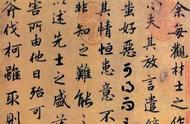 余每觀材士之作
夫其放言遣辭
蚩好惡可得而
其情恒患意不
非知之難能
以述先士之盛
害所由他日殆可
斧伐柯雖取則